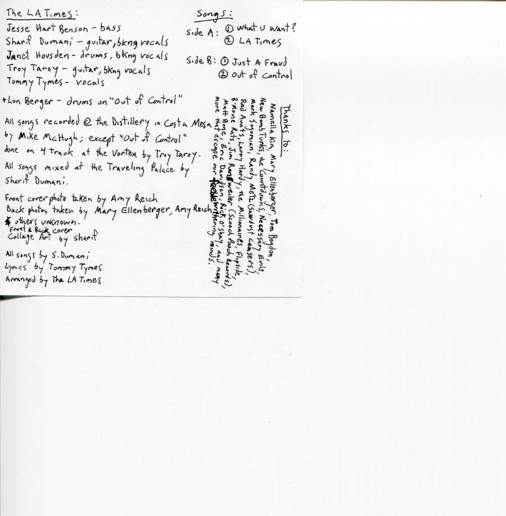 The LA Times:
Jesse Hart Benson - bass
Sharif Dumani - guitar, bkng vocals
Janet Housden - drums, bkng vocals
Troy Taroy - guitar, bkng vocals
Tommy Tymes - vocals
*Lon Berger - drums on "Out of Control"
All songs recorded @ the Distillery in Costa Mesa
by Mike McHugh; except "Out of Control"
done on 4 track at the Vortex by Troy Taroy.
All songs mixed at the Traveling Palace by
Sharif Dumani.
Front cover photo taken by Amy Reich
Back photos taken by Mary Ellenberger, Amy Reich
& others unknown.
Front & Back cover
Collage Art by Sharif
All songs by S. Dumani
Lyrics by Tommy Tymes
Arranged by The LA Times
Songs:
Side A: ① What U Want?
② LA Times
Side B: ① Just A Fraud
② Out of Control
Thanks to:
Kin, Mary Ellenberger, Tom
New Bomb Turks, the Countdowns, Necessary Evils,
Mark Sogomian, Randy Metz
Red Aunts, Larry Hardy, the Millionaires, Flipside,
Rats, Jim (Scooch Pooch Records),
Matt Bone, Eric Davidson, Rick and many
more that escape our minds.